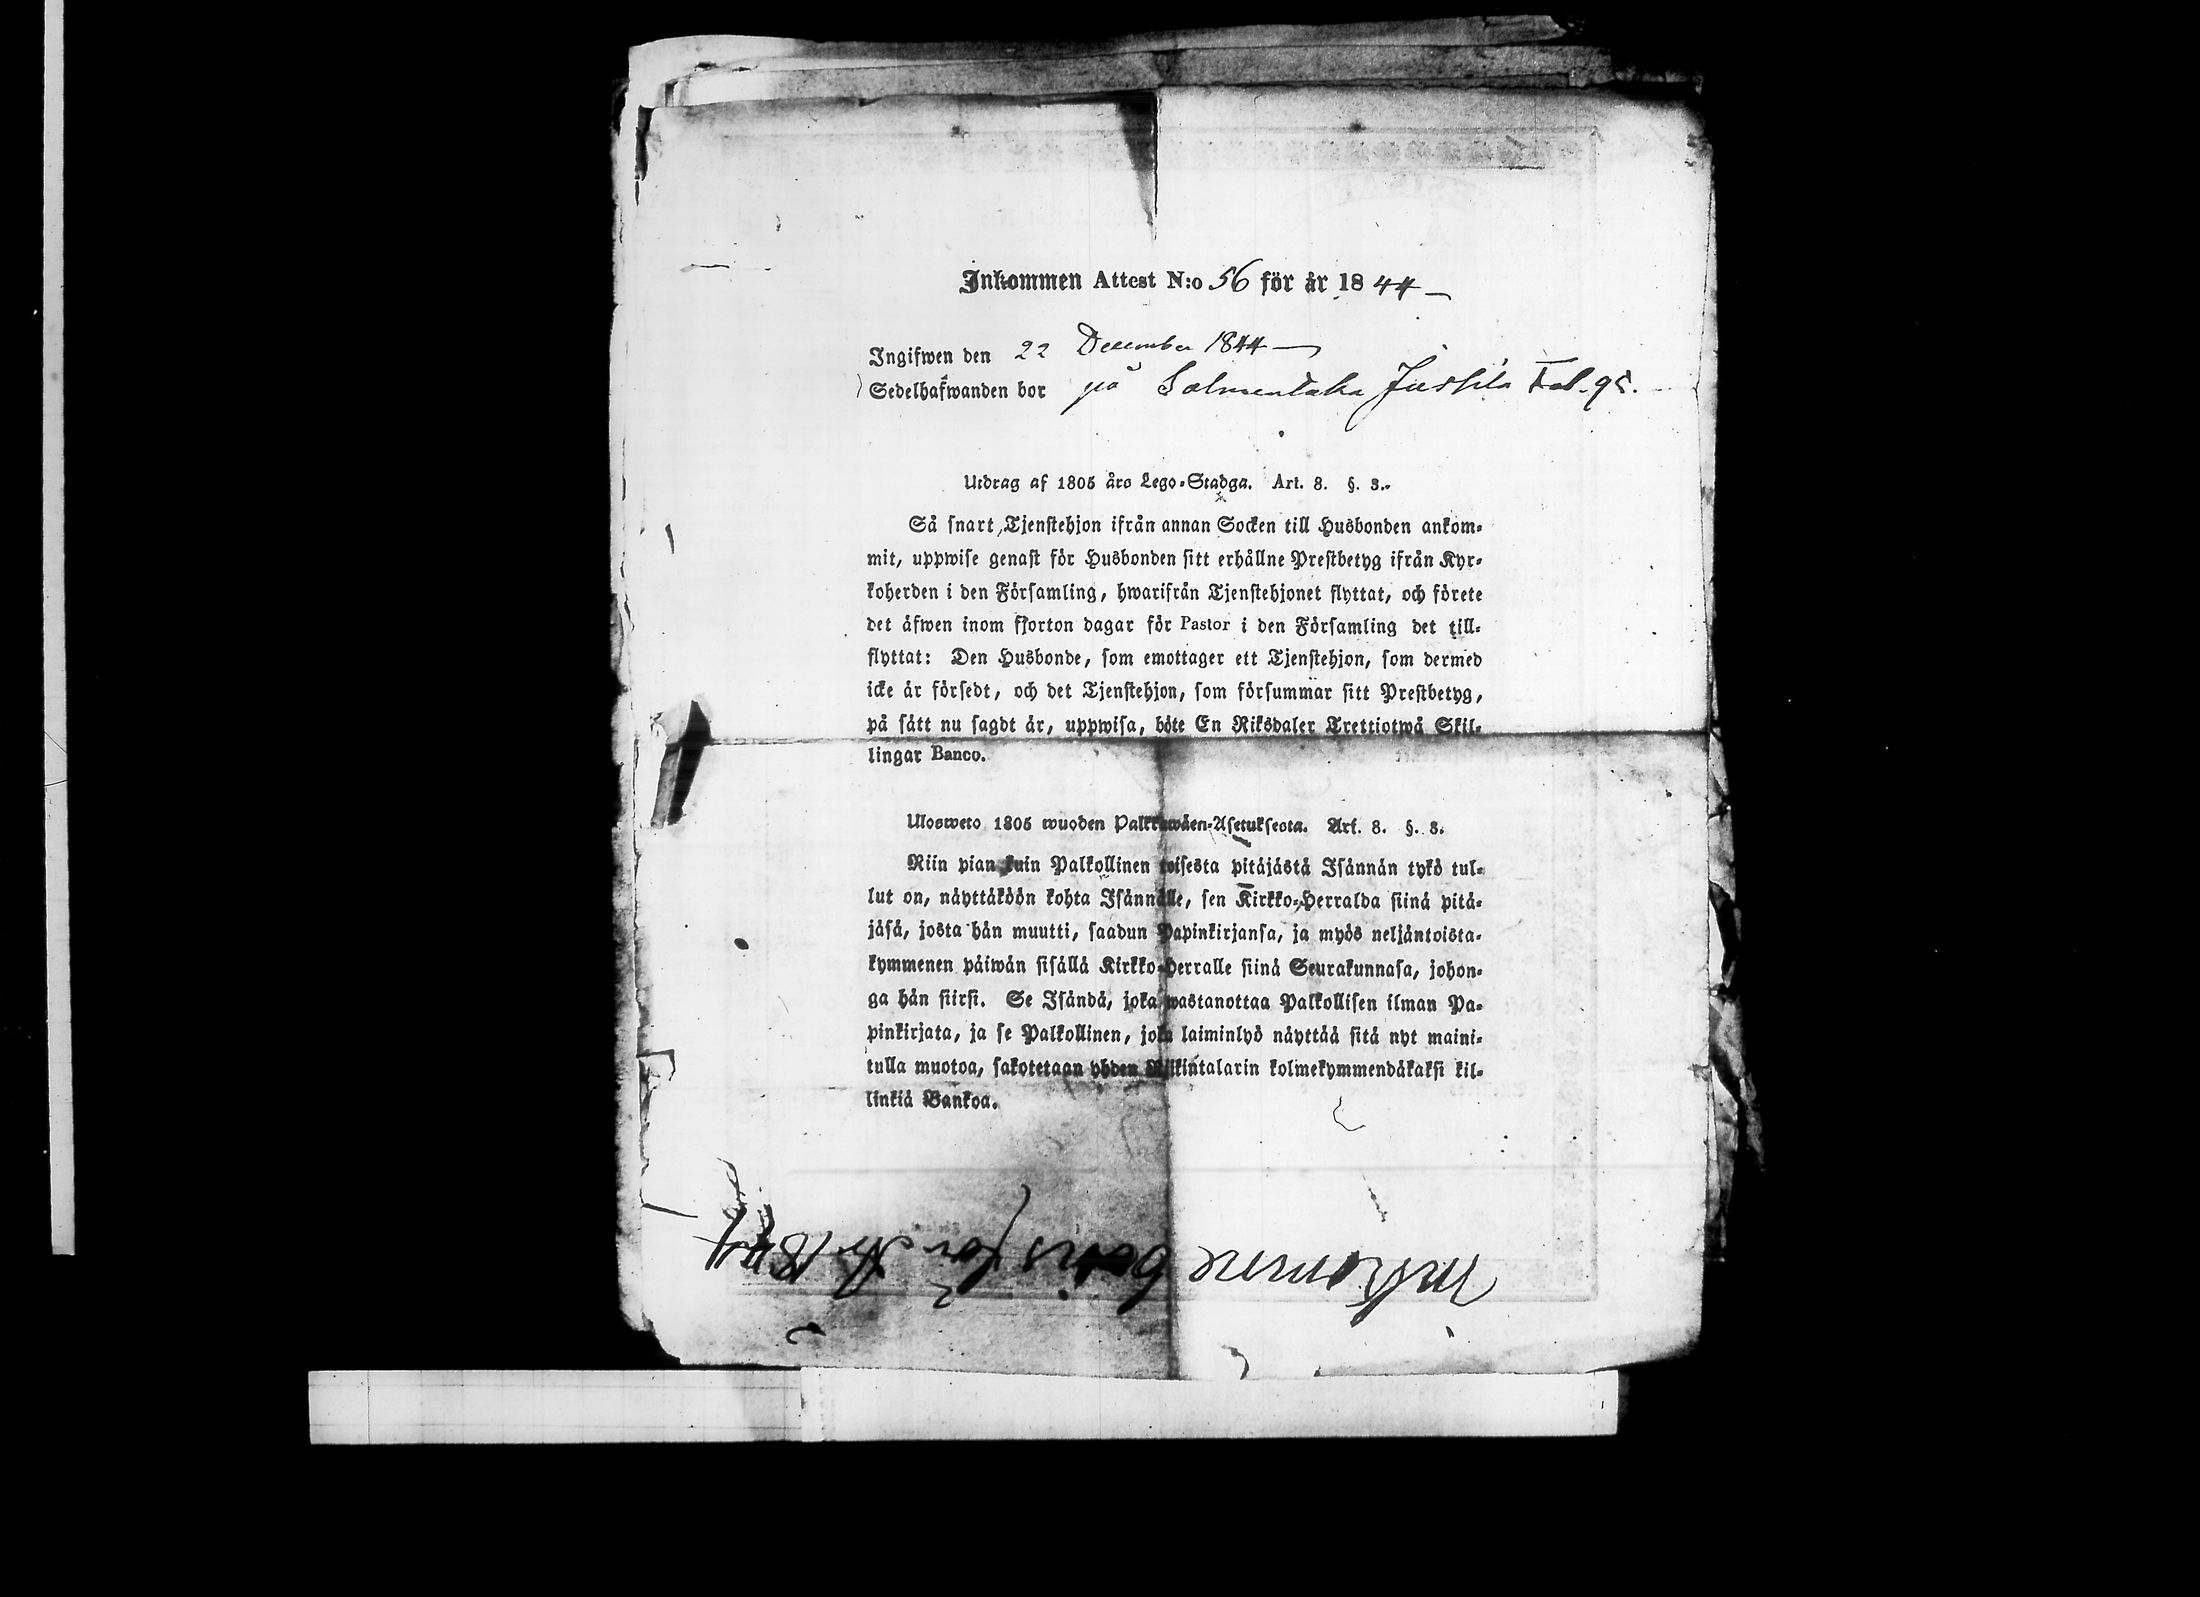 Inkommen Attest N:o 56 för år 1844
Ingifwen den 22 December 1844
Sedelhafwanden bor på Salmentaka Jussila Fol. 95.
Utdrag af 1805 års Lego-Stadga. Art. 8. §. 3.
Så snart Tjenstehjon ifrån annan Socken till Husbonden ankom-
mit, uppwise genast för Husbonden sitt erhållne Prestbetyg ifrån Kyr-
koherden i den Församling, hwarifrån Tjenstehjonet flyttat, och förete
det äfwen inom fjorton dagar för Pastor i den Församling det till-
flyttat: Den Husbonde, som emottager ett Tjenstehjon, som dermed
icke är försedt, och det Tjenstehjon, som försummar sitt Prestbetyg,
på sätt nu sagdt är, uppwisa, böte En Riksdaler Trettiotwå Skil-
lingar Banco.
Ulosweto 1805 wuoden Palkkawäen-Asetuksesta. Art. 8. §. 3.
Niin pian kuin Palkollinen toisesta pitäjästä Isännän tykö tul-
lut on, näyttäköön kohta Isännälle, sen Kirkko-Herralda siinä pitä-
jäsä, josta hän muutti, saadun Papinkirjansa, ja myös neljäntoista-
kymmenen päiwän sisällä Kirkko-Herralle siinä Seurakunnasa, johon-
ga hän siirsi. Se Isändä, joka wastanottaa Palkollisen ilman Pa-
pinkirjata, ja se Palkollinen, joka laiminlyö näyttää sitä nyt maini-
tulla muotoa, sakotetaan yhden Riikintalarin kolmekymmendäkaksi kil-
linkiä Bankoa.
för År 1844